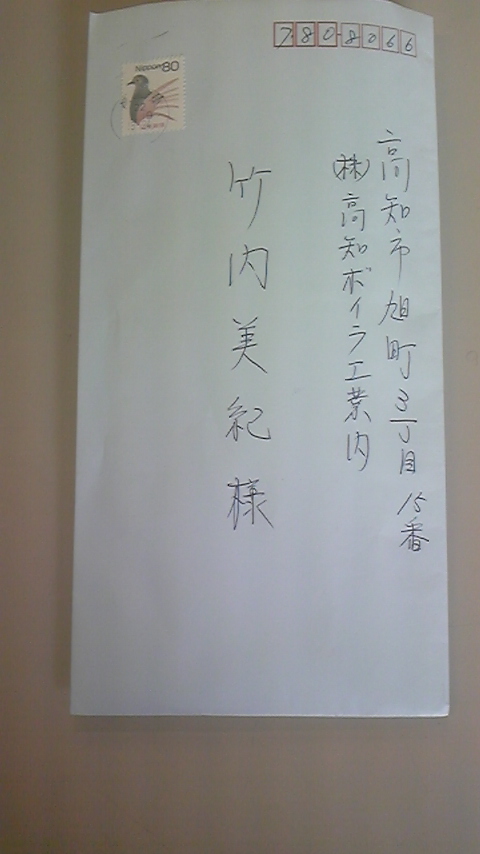 780-8066
NIPPON 80
高知市旭町3丁目15番
(株)高知ボイラ工業内
竹内美紀様